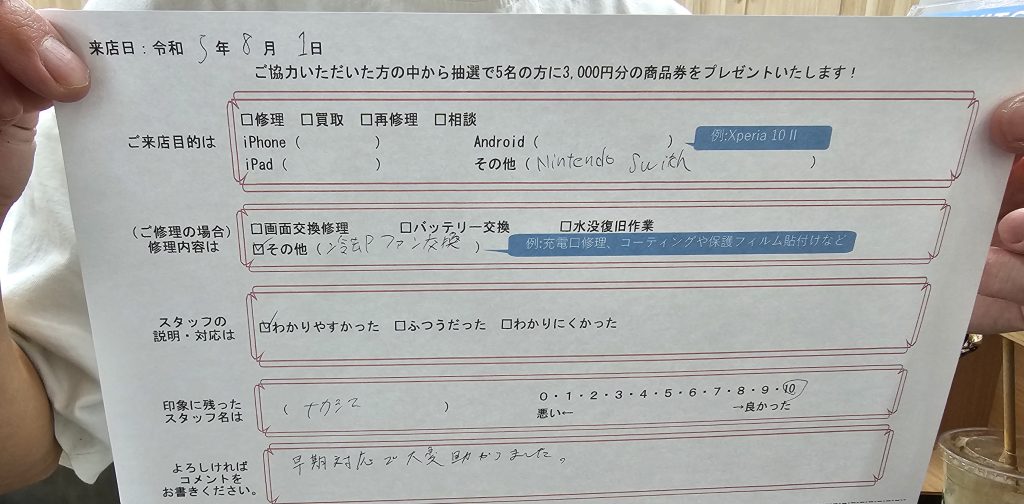 来店日：令和 5 年 8 月 1 日
ご協力いただいた方の中から抽選で5名の方に3,000円分の商品券をプレゼントいたします！
ご来店目的は
□修理 □買取 □再修理 □相談
iPhone（ ） Android（ ） 例:Xperia 10 II
iPad（ ） その他（Nintendo Swith ）
（ご修理の場合）
修理内容は
□画面交換修理 □バッテリー交換 □水没復旧作業
☑その他（冷却ファン交換 ） 例:充電口修理、コーティングや保護フィルム貼付けなど
スタッフの
説明・対応は
☑わかりやすかった □ふつうだった □わかりにくかった
印象に残った
スタッフ名は
（ ナカシマ ）
0・1・2・3・4・5・6・7・8・9・10
悪い← →良かった
よろしければ
コメントを
お書きください。
早期対応で大変助かりました。